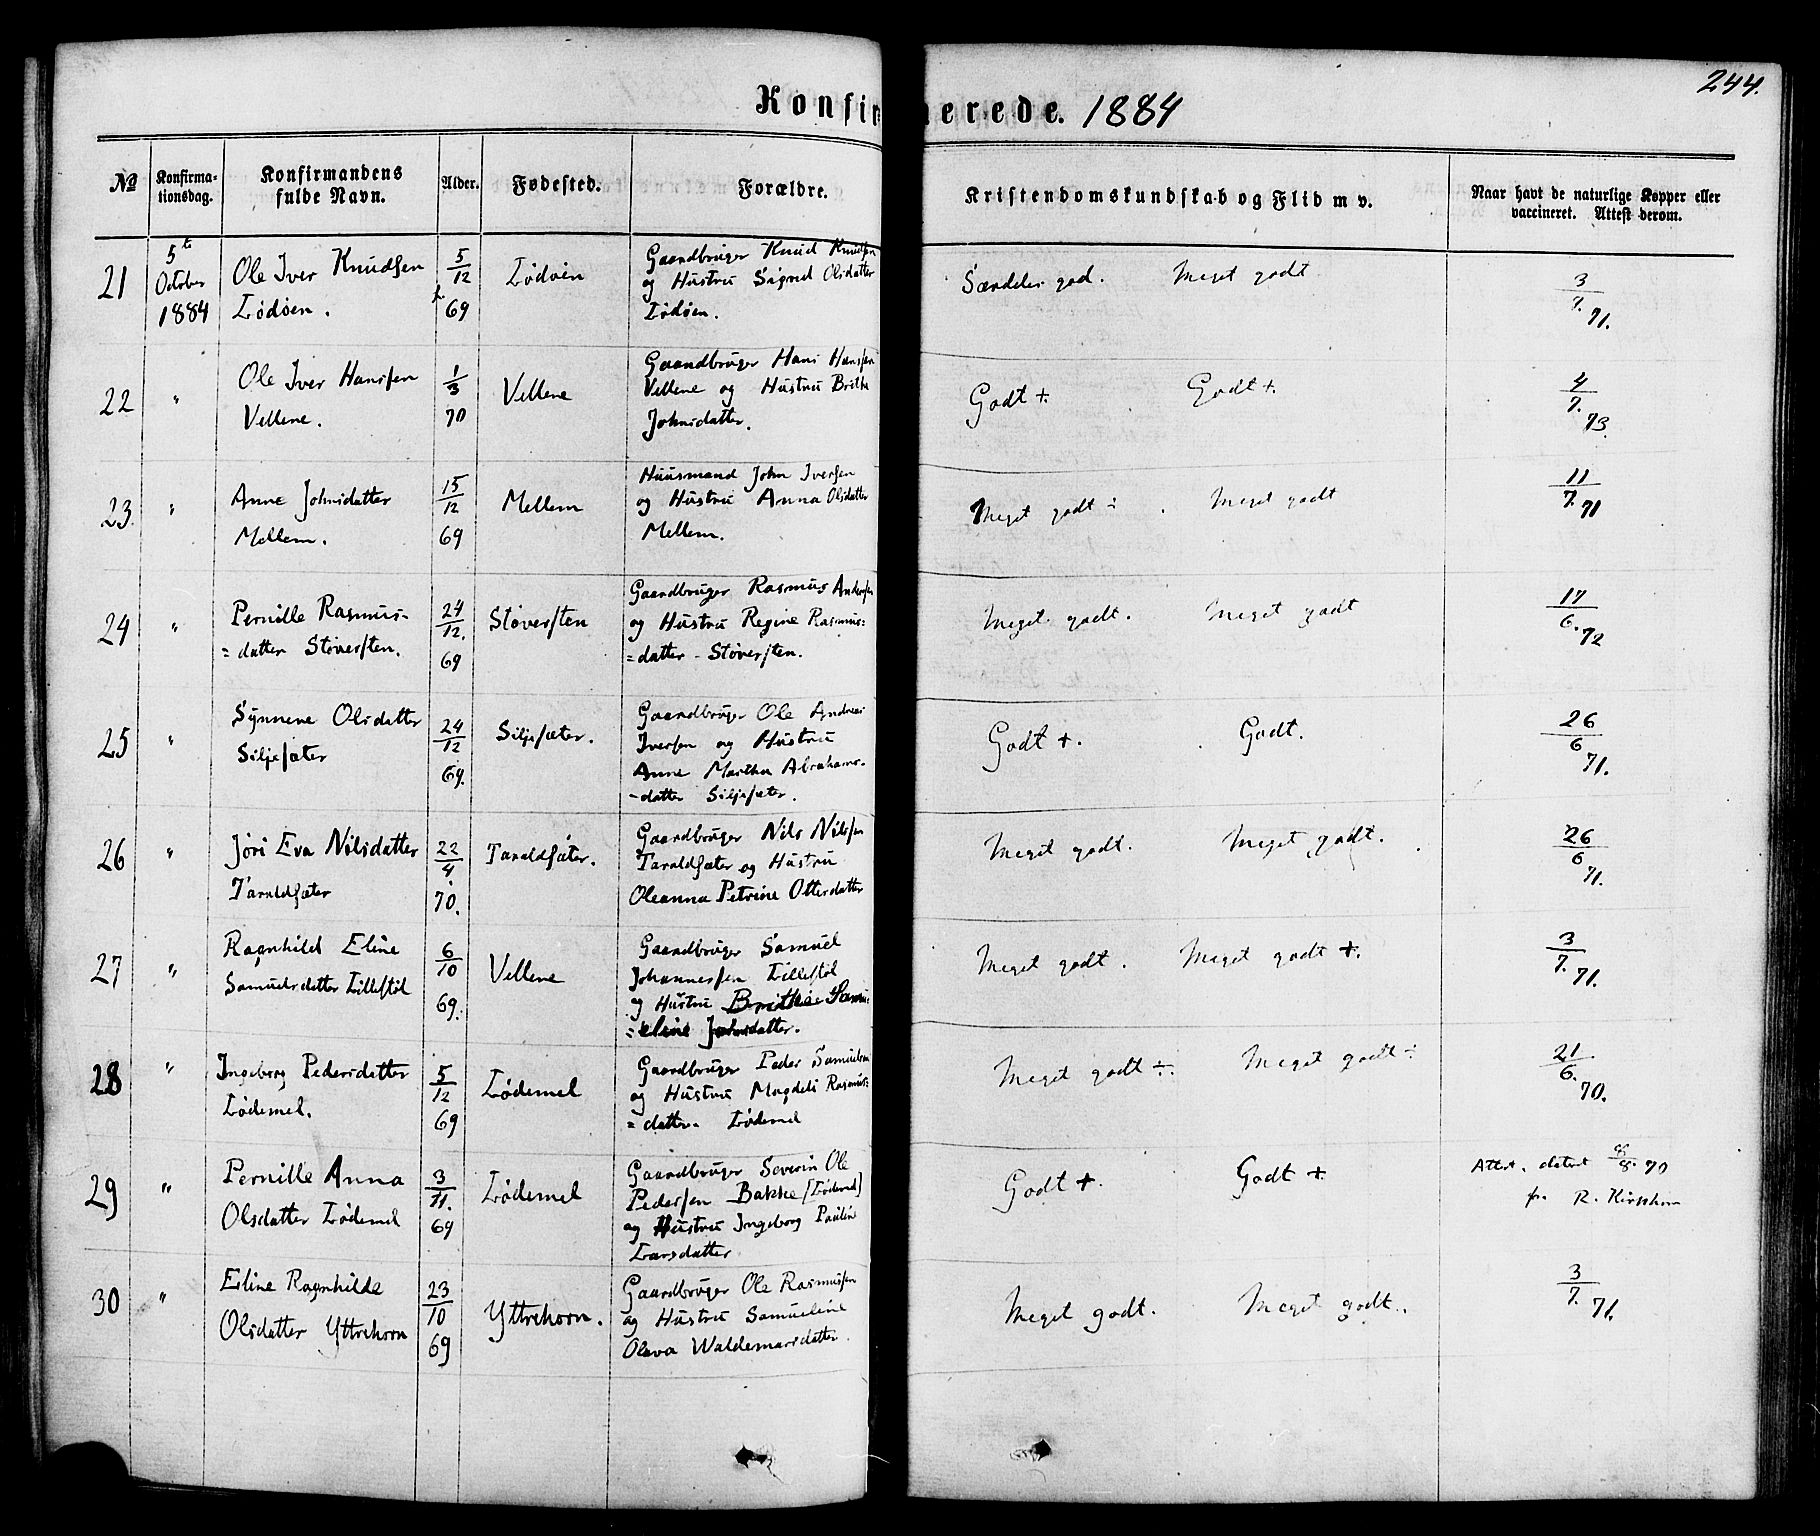 244.
Konfirmerede. 1884
№ Konfirmationsdag. Konfirmandens fulde Navn. Alder. Fødested. Forældre. Kristendomskundskab og Flid m v. Naar havt de naturlige Kopper eller vaccineret. Attest derom.
21 5te October 1884 Ole Iver Knudsen Lødøen. 5/12 69 Lødøen Gaardbruger Knud Knudsen og Hustru Sigrid Olsdatter Lødøen. Særdeles god. Meget godt 3/7. 71.
22 " Ole Iver Hanssen Vellene. 1/3 70 Vellene Gaardbruger Hans Hanssen Vellene og Hustru Brithe Johnsdatter. Godt +. Godt +. 4/7. 73.
23. " Anne Johnsdatter Mellem. 15/12 69 Mellem Huusmand John Iversen og Hustru Anna Olsdatter Mellem. Meget godt ÷ Meget godt 11/7. 71
24 " Pernille Rasmus= =datter Støversten. 24/12. 69 Støversten Gaardbruger Rasmus Andersen og Hustru Regine Rasmus= =datter - Støversten. Meget godt. Meget godt 17/6. 72
25 " Synneve Olsdatter Siljesæter 24/12 69. Siljesæter. Gaardbruger Ole Andreas Iversen og Hustru Anne Martha Abrahams- -datter Siljesæter. Godt +. Godt. 26/6 71.
26 " Jøri Eva Nilsdatter Taraldsæter 22/4 70. Taraldsæter. Gaardbruger Nils Nilssen Taraldsæter og Hustru Oleanna Petrine Ottersdatter Meget godt. Meget godt. 26/6 71.
27 " Ragnhild Eline Samuelsdatter Lillestøl 6/10 69. Vellene Gaardbruger Samuel Johannessen Lillestøl og Hustru Brithe Samu= =eline Johnsdatter. Meget godt. Meget godt +. 3/7. 71.
28 " Ingeborg Pedersdatter Lødemel. 5/12 69 Lødemel Gaardbruger Peder Samuelsen og Hustru Magdeli Rasmus= =datter. Lødemel Meget godt ÷. Meget godt ÷ 21/6. 70.
29 " Pernille Anna Olsdatter Lødemel 3/11. 69 Lødemel Gaardbruger Severin Ole Pedersen Bakke [Lødemel] og Hustru Ingeborg Pauline Larsdatter Godt +. Godt +. Attest. dateret 8/8. 70 fra R.
30 " Eline Ragnhilde Olsdatter Yttrehorn 23/10 69 Yttrehorn. Gaardbruger Ole Rasmussen og Hustru Samueline Oleva Waldemarsdatter. Meget godt. Meget godt. 3/7. 71.